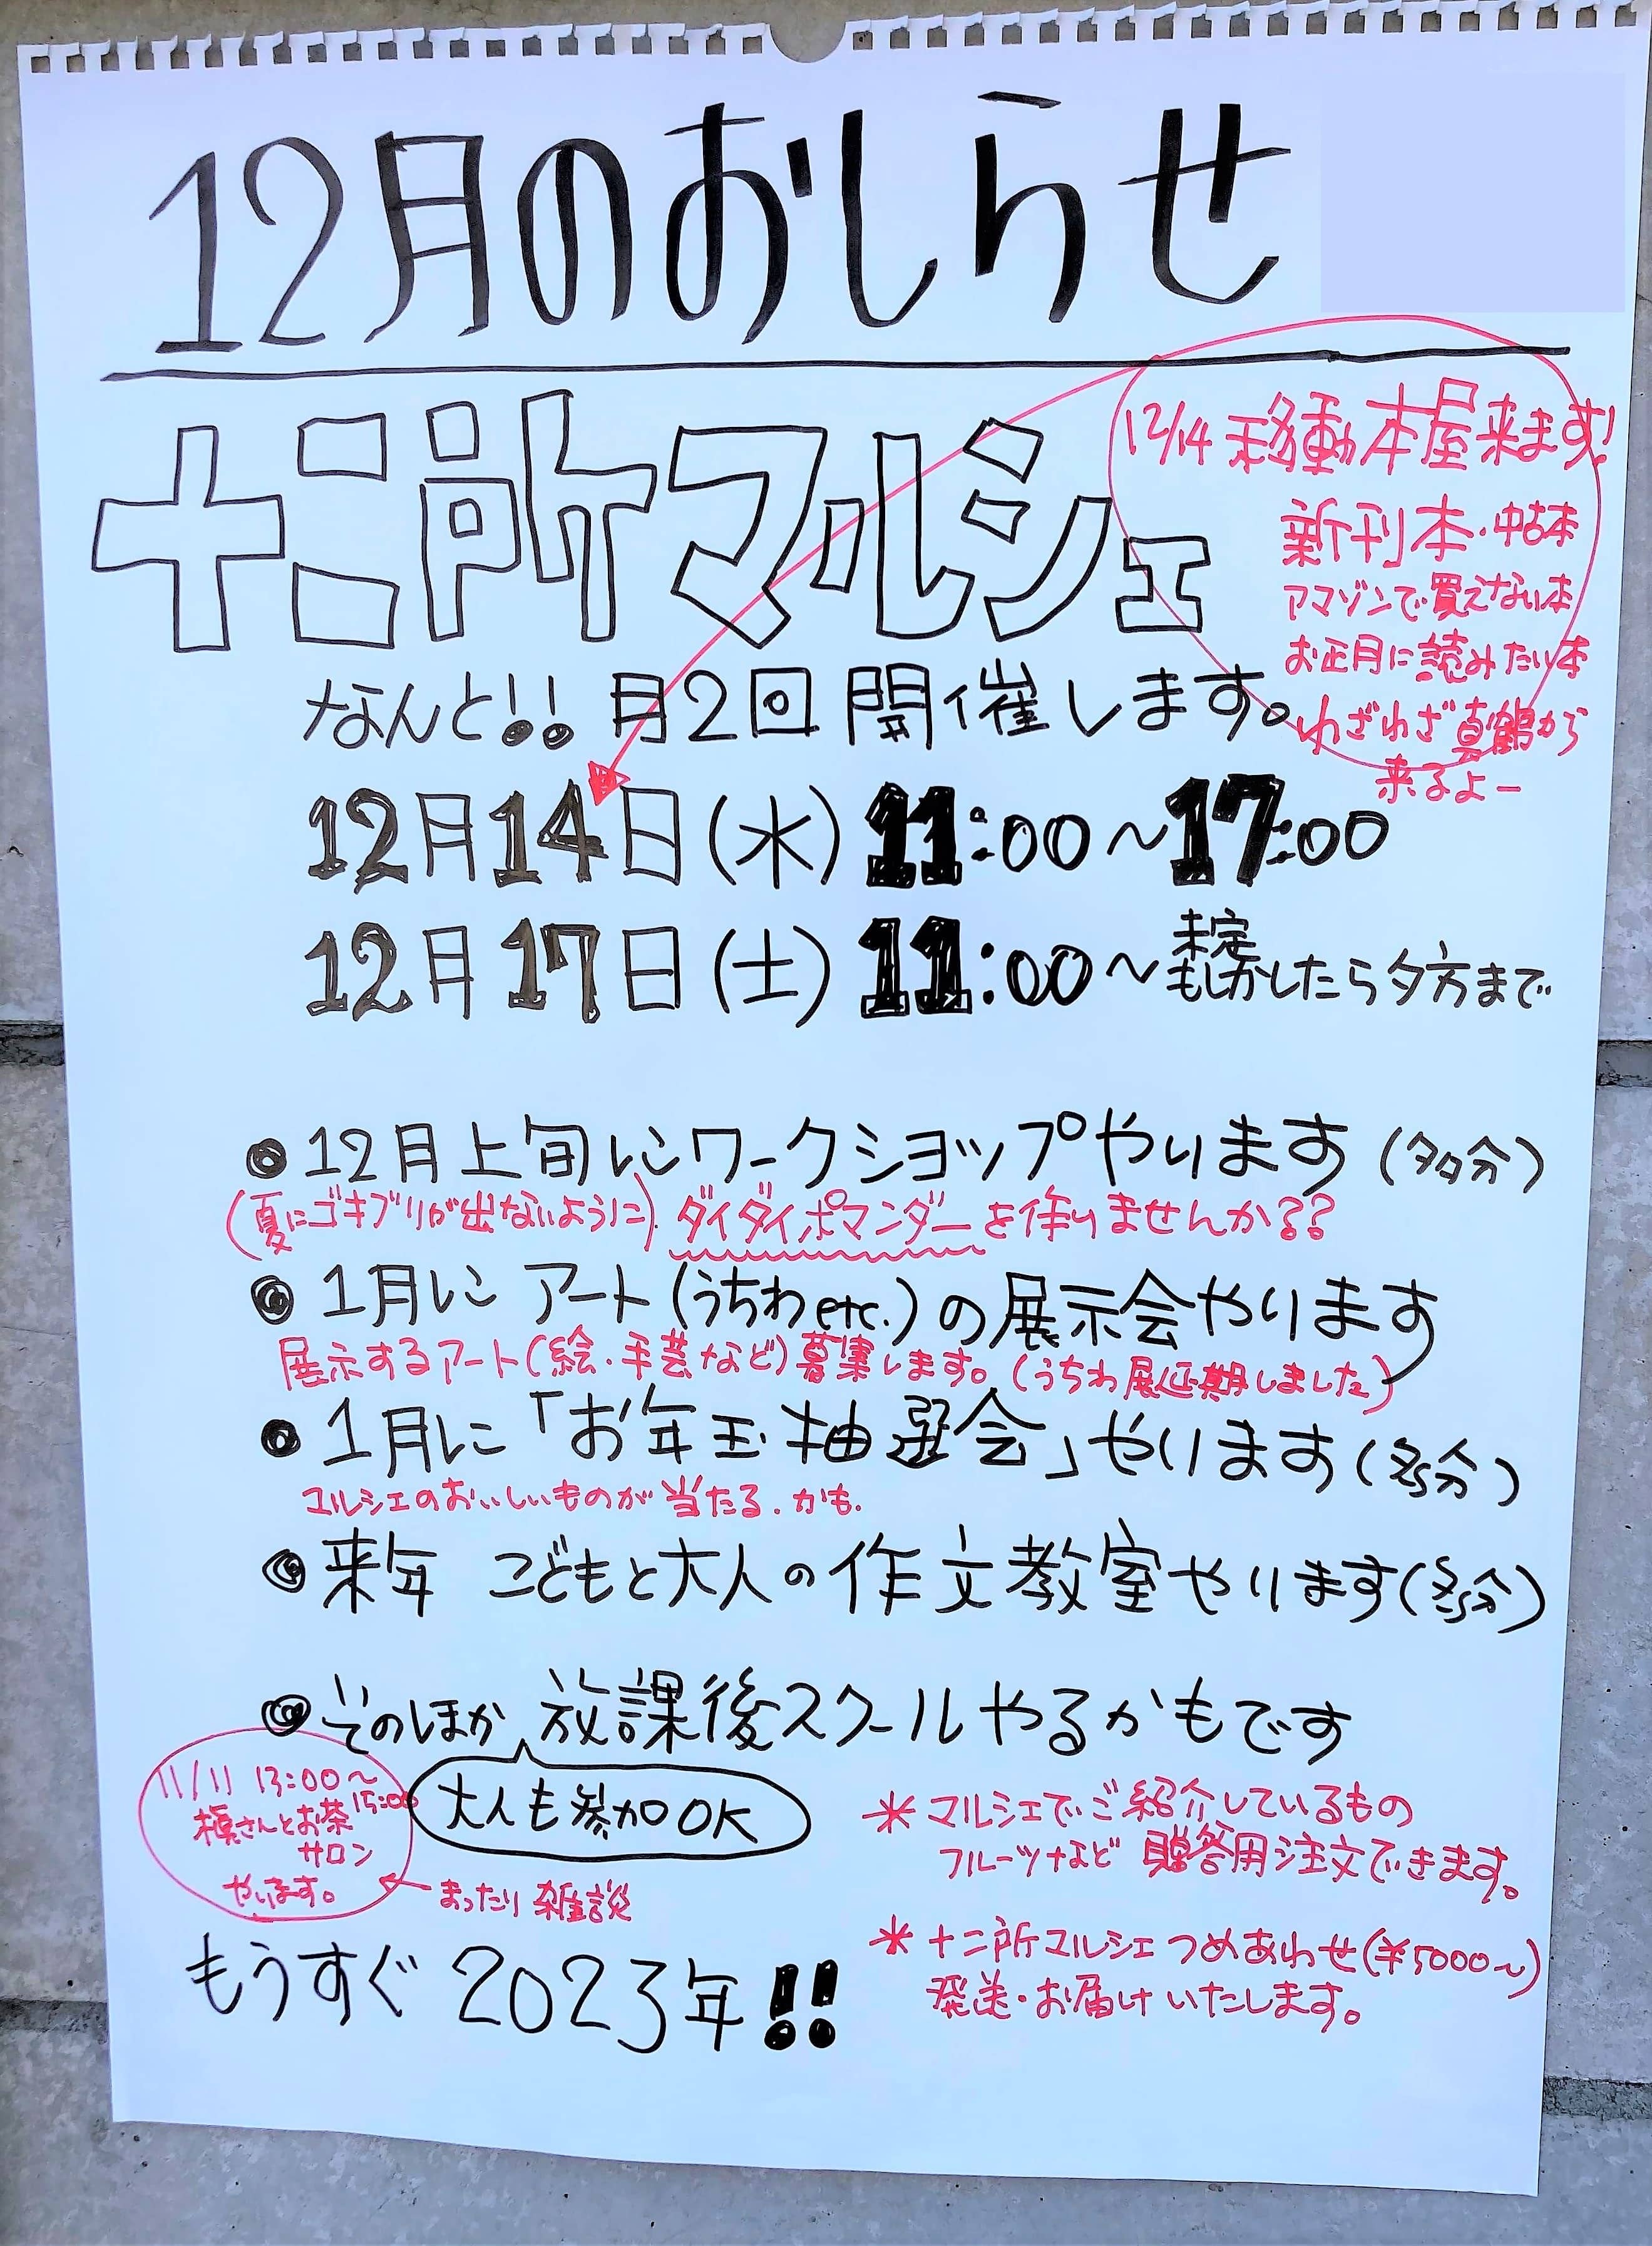 12月のおしらせ
十二所マルシェ
12/14 移動本屋来ます!
新刊本・中古本
アマゾンで買えない本
お正月に読みたい本
わざわざ真鶴から
来るよー
なんと!! 月2回開催します。
12月14日(水) 11:00～17:00
12月17日(土) 11:00～未定
もしかしたら夕方まで
◉12月上旬にワークショップやります(多分)
(夏にゴキブリが出ないように) ダイダイポマンダーを作りませんか??
◉1月に アート(うちわetc.)の展示会やります
展示するアート(絵・手芸など)募集します。(うちわ展延期しました)
◉1月に「お年玉抽選会」やります(多分)
マルシェのおいしいものが当たる.かも.
◉来年 こどもと大人の作文教室やります(多分)
◉そのほか 放課後スクールやるかもです
大人も参加OK
11/11 13:00～
15:00
槙さんとお茶
サロン
やります。
まったり雑談
*マルシェでご紹介しているもの
フルーツなど 贈答用注文できます。
*十二所マルシェつめあわせ(¥5000～)
発送・お届けいたします。
もうすぐ 2023年!!